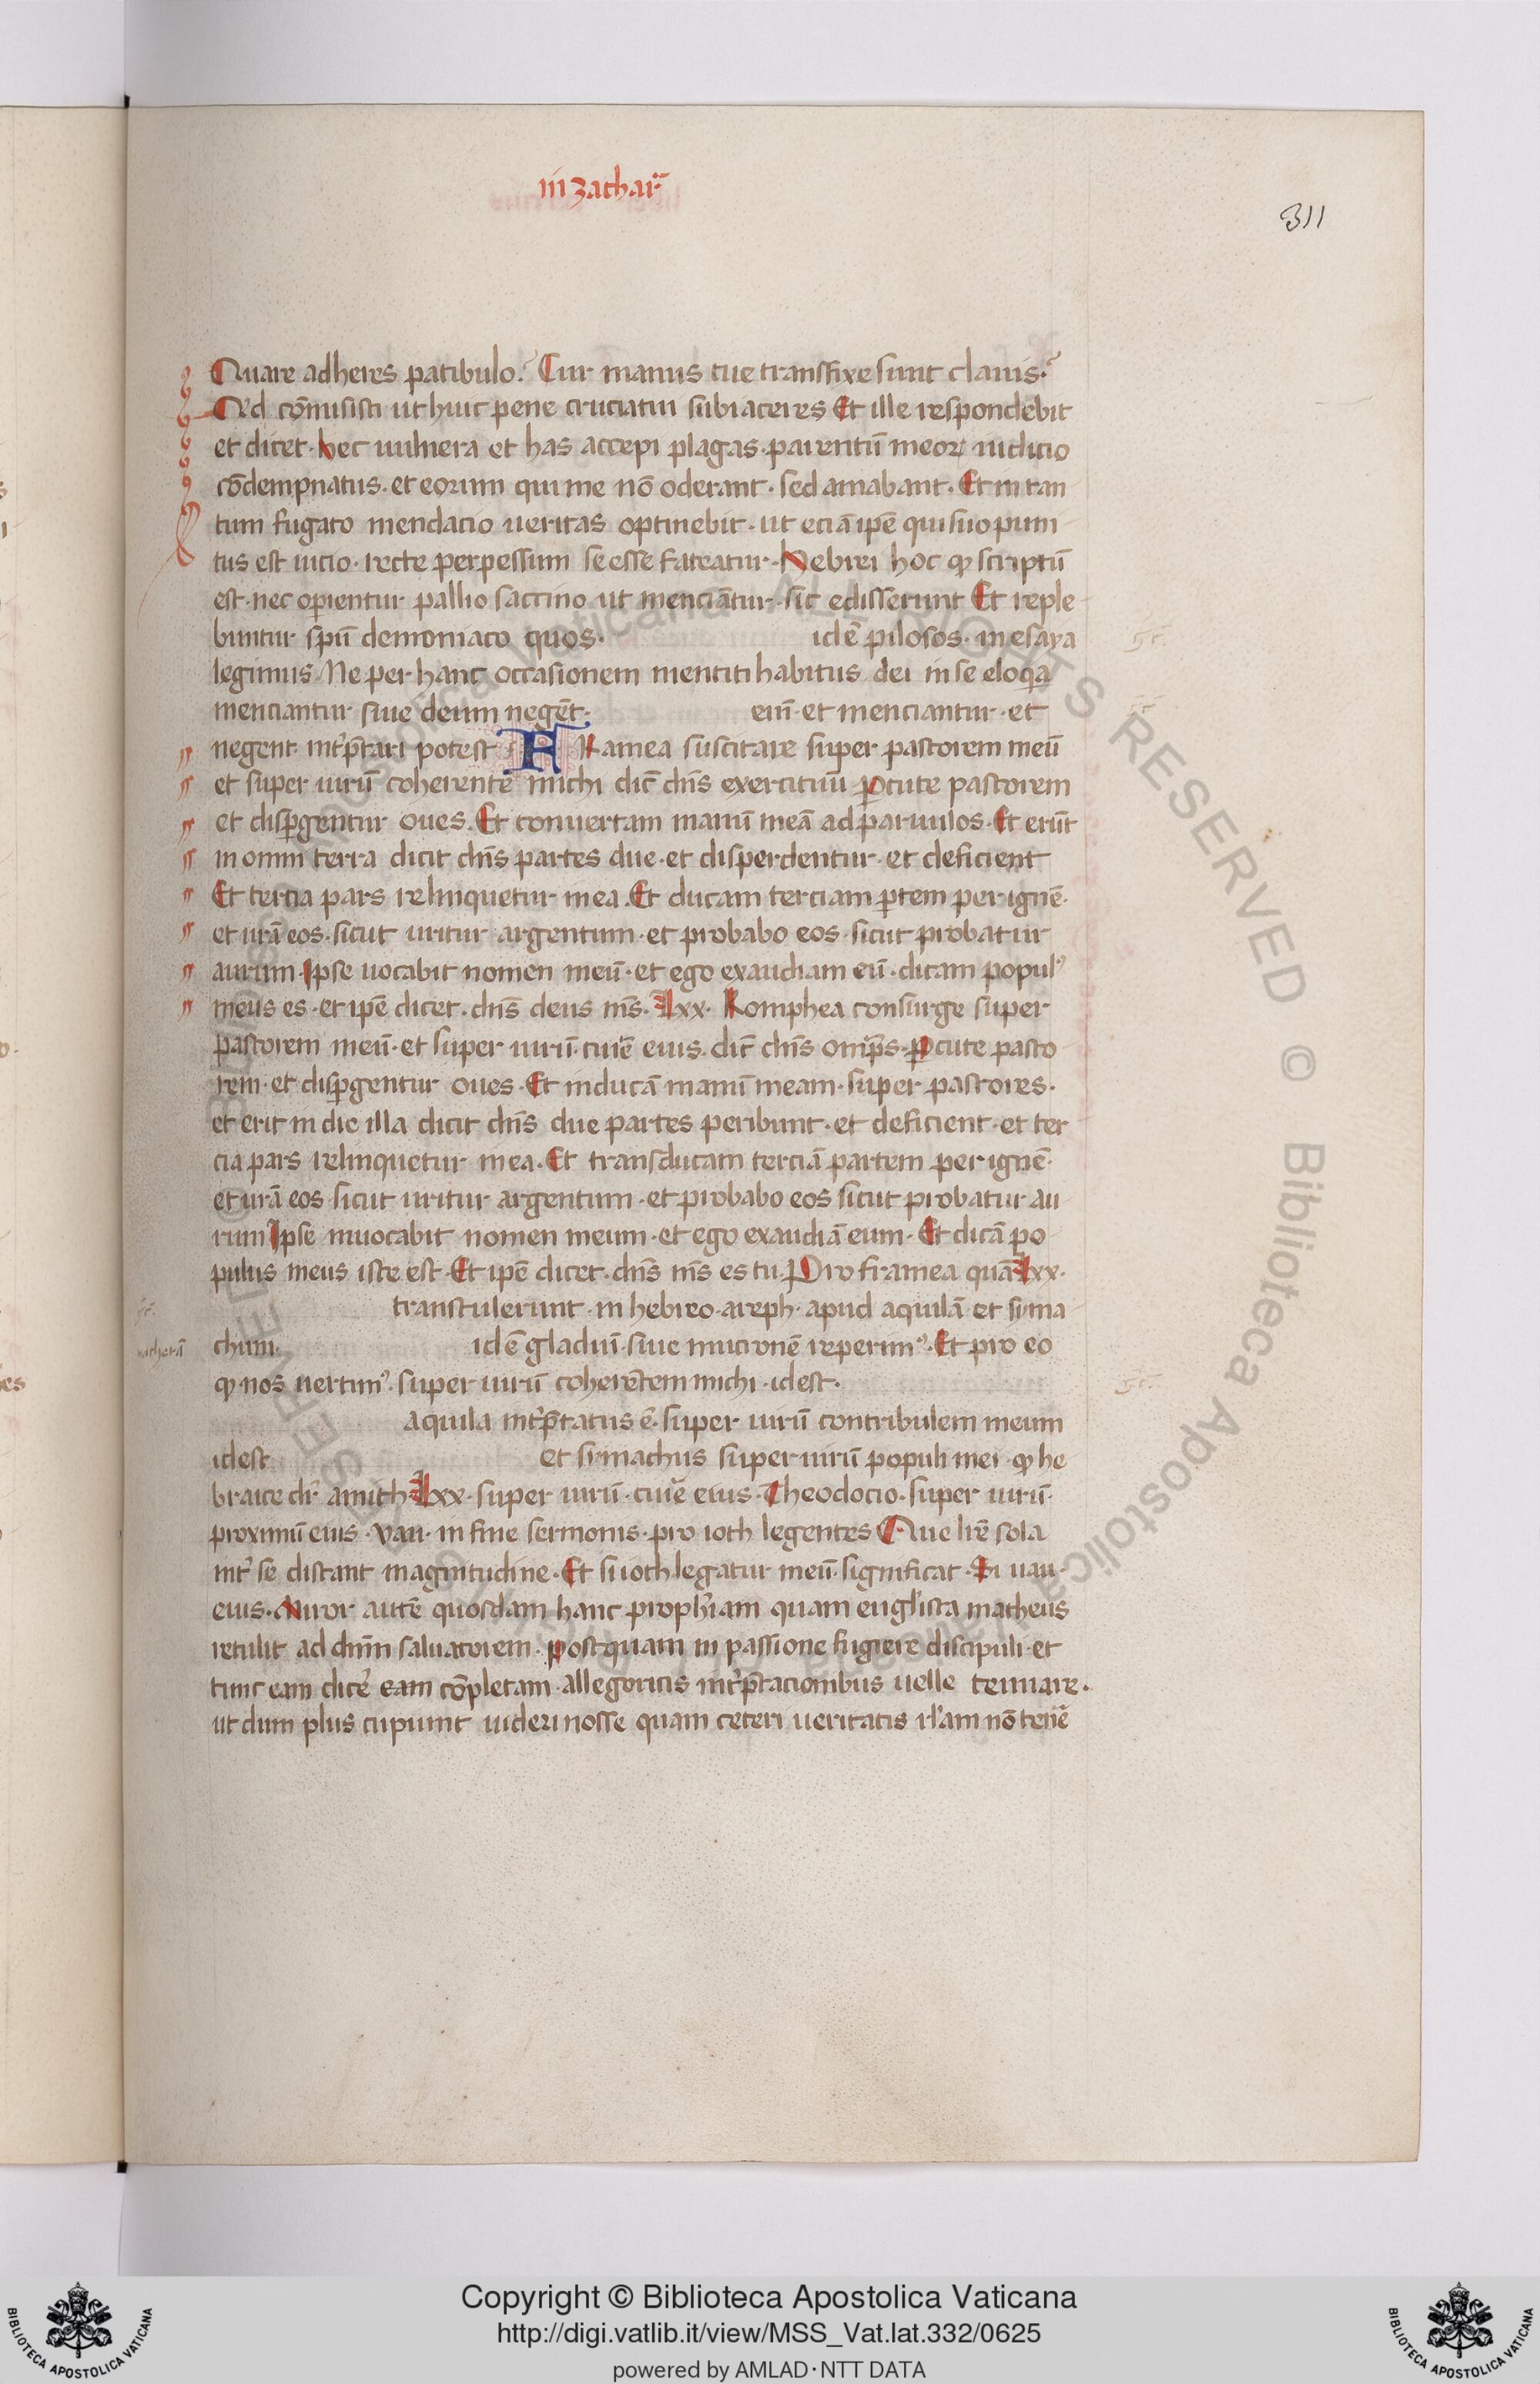 in zachar̄
311
Quare adheres patibulo? Cur manus tue transfixe sunt clauis?
Qid cōmisisti ut huic pene cruciatui subiaceres Et ille respondebit
et dicet. hec uulnera et has accepi plagas. parentū meoꝝ iudicio
cōdempnatus. et eorum qui me nō oderant. sed amabant. Et in tan
tum fugato mendacio ueritas optinebit. ut eciā ipē qui suo puni
tus est uicio. recte perpessum se esse fateatur. Hebrei hoc qᷓ scriptū
est. nec operientur pallio saccino ut menciāntur. sic edisserunt Et reple
buntur spū demoniaco quos. idē pilosos. in esaya
legimus. Ne per hanc occasionem mentiti habitus dei in se eloqia
menciantur siue deum negēt. eum. et menciantur. et
negent. int̄ptari potest FRamea suscitare super pastorem meū
et super uirū coherentē michi dic̄ dn̄s exercituū ꝑcute pastorem
et disꝑgentur oues. Et conuertam manū meā ad paruulos. Et erūt
in omni terra dicit dn̄s partes due. et disperdentur. et deficient
Et tercia pars relinquetur in ea. Et ducam terciam ꝑtem per ignē.
et urā eos. sicut uritur argentum. et probabo eos. sicut probatur
aurum. Ipse uocabit nomen meū. et ego exaudiam eū. dicam popul᾿
meus es. et ipē dicet. dn̄s deus m̄s. Lxx. Romphea consurge super
pastorem meū. et super uirū. ciuē eius. dic̄ dn̄s omp̄s. ꝑcute pasto
rem. et disꝑgentur oues. Et inducā manū meam. super pastores.
et erit in die illa dicit dn̄s due partes peribunt. et deficient. et ter
cia pars relinquetur in ea. Et transducam terciā partem per ignē.
et urā eos. sicut uritur argentum. et probabo eos sicut probatur au
rum Ipse inuocabit nomen meum. et ego exaudiā eum. Et dicā po
pulus meus iste est. Et ipē dicet. dn̄s m̄s es tu. Pro framea quā Lxx.
transtulerunt. in hebreo. areph. apud aquilā et sima
chum. idē gladiū. siue mucronē reperim᾿. Et pro eo
qᷓ nos uertim᾿. super uirū coherētem michi. idest.
aquila int̄ptatus ē. super uirū contribulem meum
idest et simachus super uirū populi mei. qᷓ he
braice dr̄ amith Lxx. super uirū. ciuē eius. Theodocio. super uirū.
proximū eius. vau. in fine sermonis. pro ioth legentes Que lr̄e sola
int̄ se distant magnitudine. Et si ioth legatur meū. significat. Si uau.
eius. Miror autē quosdam hanc proph̄iam quam eugl̄ista matheus
retulit ad dn̄m saluatorem. postquam in passione fugiere discipuli. et
tunc eam dicēt eam cōpletam. allegoricis int̄ptacionibus uelle tenuare.
ut dum plus cupiunt uideri nosse quam ceteri ueritatis rl̄am nō tenē
Copyright © Biblioteca Apostolica Vaticana
http://digi.vatlib.it/view/MSS_Vat.lat.332/0625
powered by AMLAD·NTT DATA
BIBLIOTECA APOSTOLICA VATICANA
BIBLIOTECA APOSTOLICA VATICANA